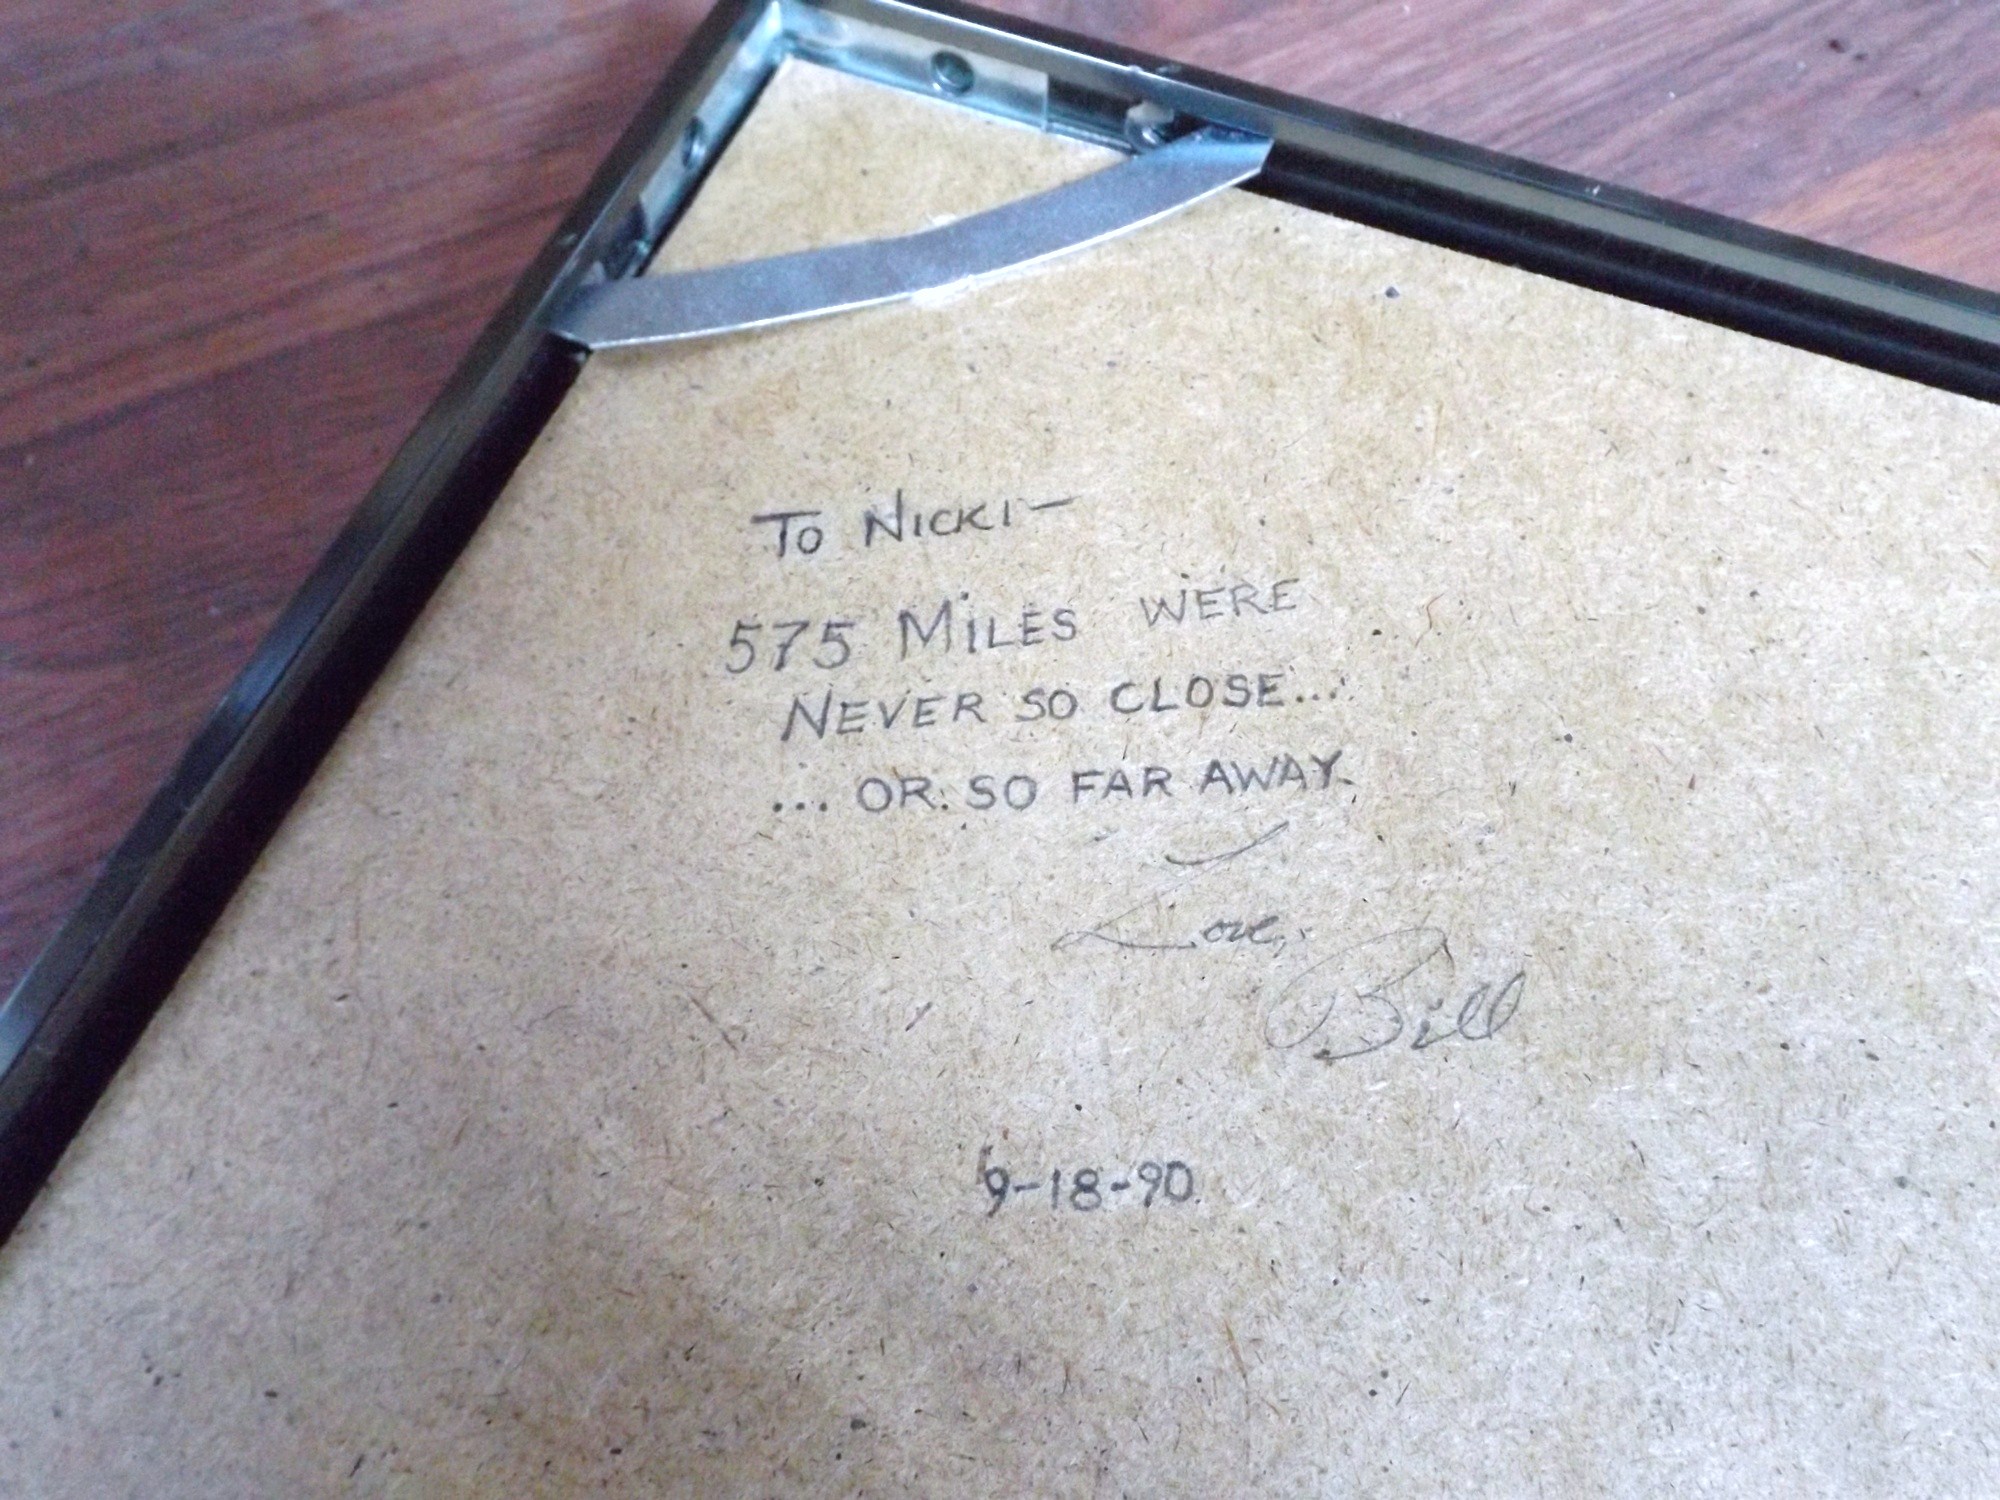 To Nicki—
575 MILES WERE
NEVER SO CLOSE...
... OR SO FAR AWAY.
Love,
Bill
9-18-90